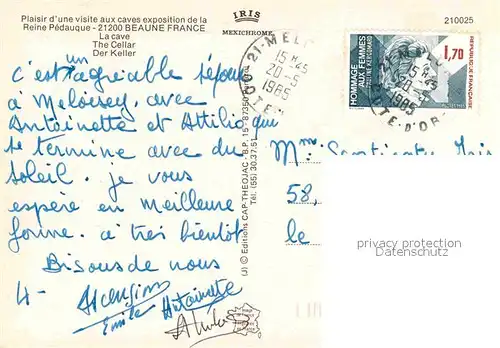 Plaisir d'une visite aux caves exposition de la
Reine Pédauque - 21200 BEAUNE FRANCE
La cave
The Cellar
Der Keller
IRIS
MEXICHROME
210025
un
c'est agréable séjour
à Meloisey, avec
Antoinette et Attilio qui
se termine avec du
soleil. je vous
espère en meilleure
forme. à très bientôt
Bisous de nous
4-
Emile Antoinette
(J) © Editions CAP-THEOJAC - B.P. 15 - 87350
Tél. (55) 30.37.51
21-MELOISEY
15 H 45
20-5
1985
CÔTE-D'OR
HOMMAGE
AUX FEMMES
PAULINE KERGOMARD
1,70
REPUBLIQUE FRANCAISE
Mme
58,
le
privacy protection
Datenschutz